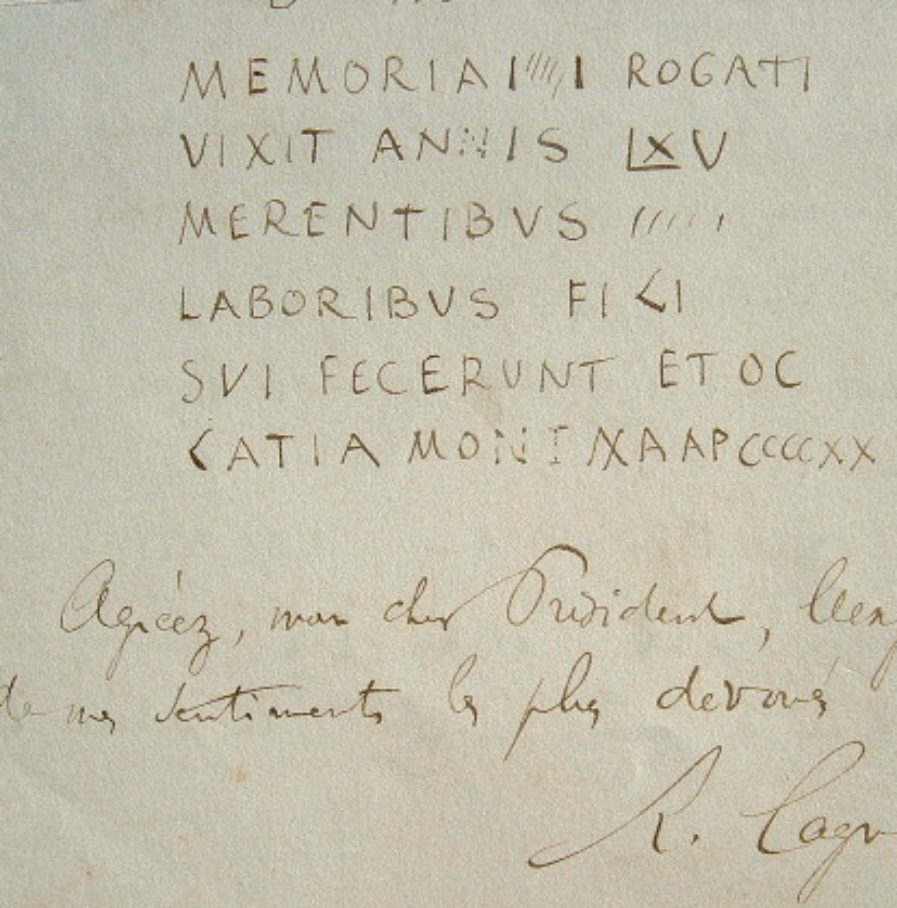 MEMORIAI/////I ROGATI
VIXIT ANNIS LXV
MERENTIBVS //////
LABORIBVS FILI
SVI FECERVNT ET OC
CATIA MONINXAAPCCCCXX
Agréez, mon cher Président,
de mes sentiments les plus dévoués
R. Cagn